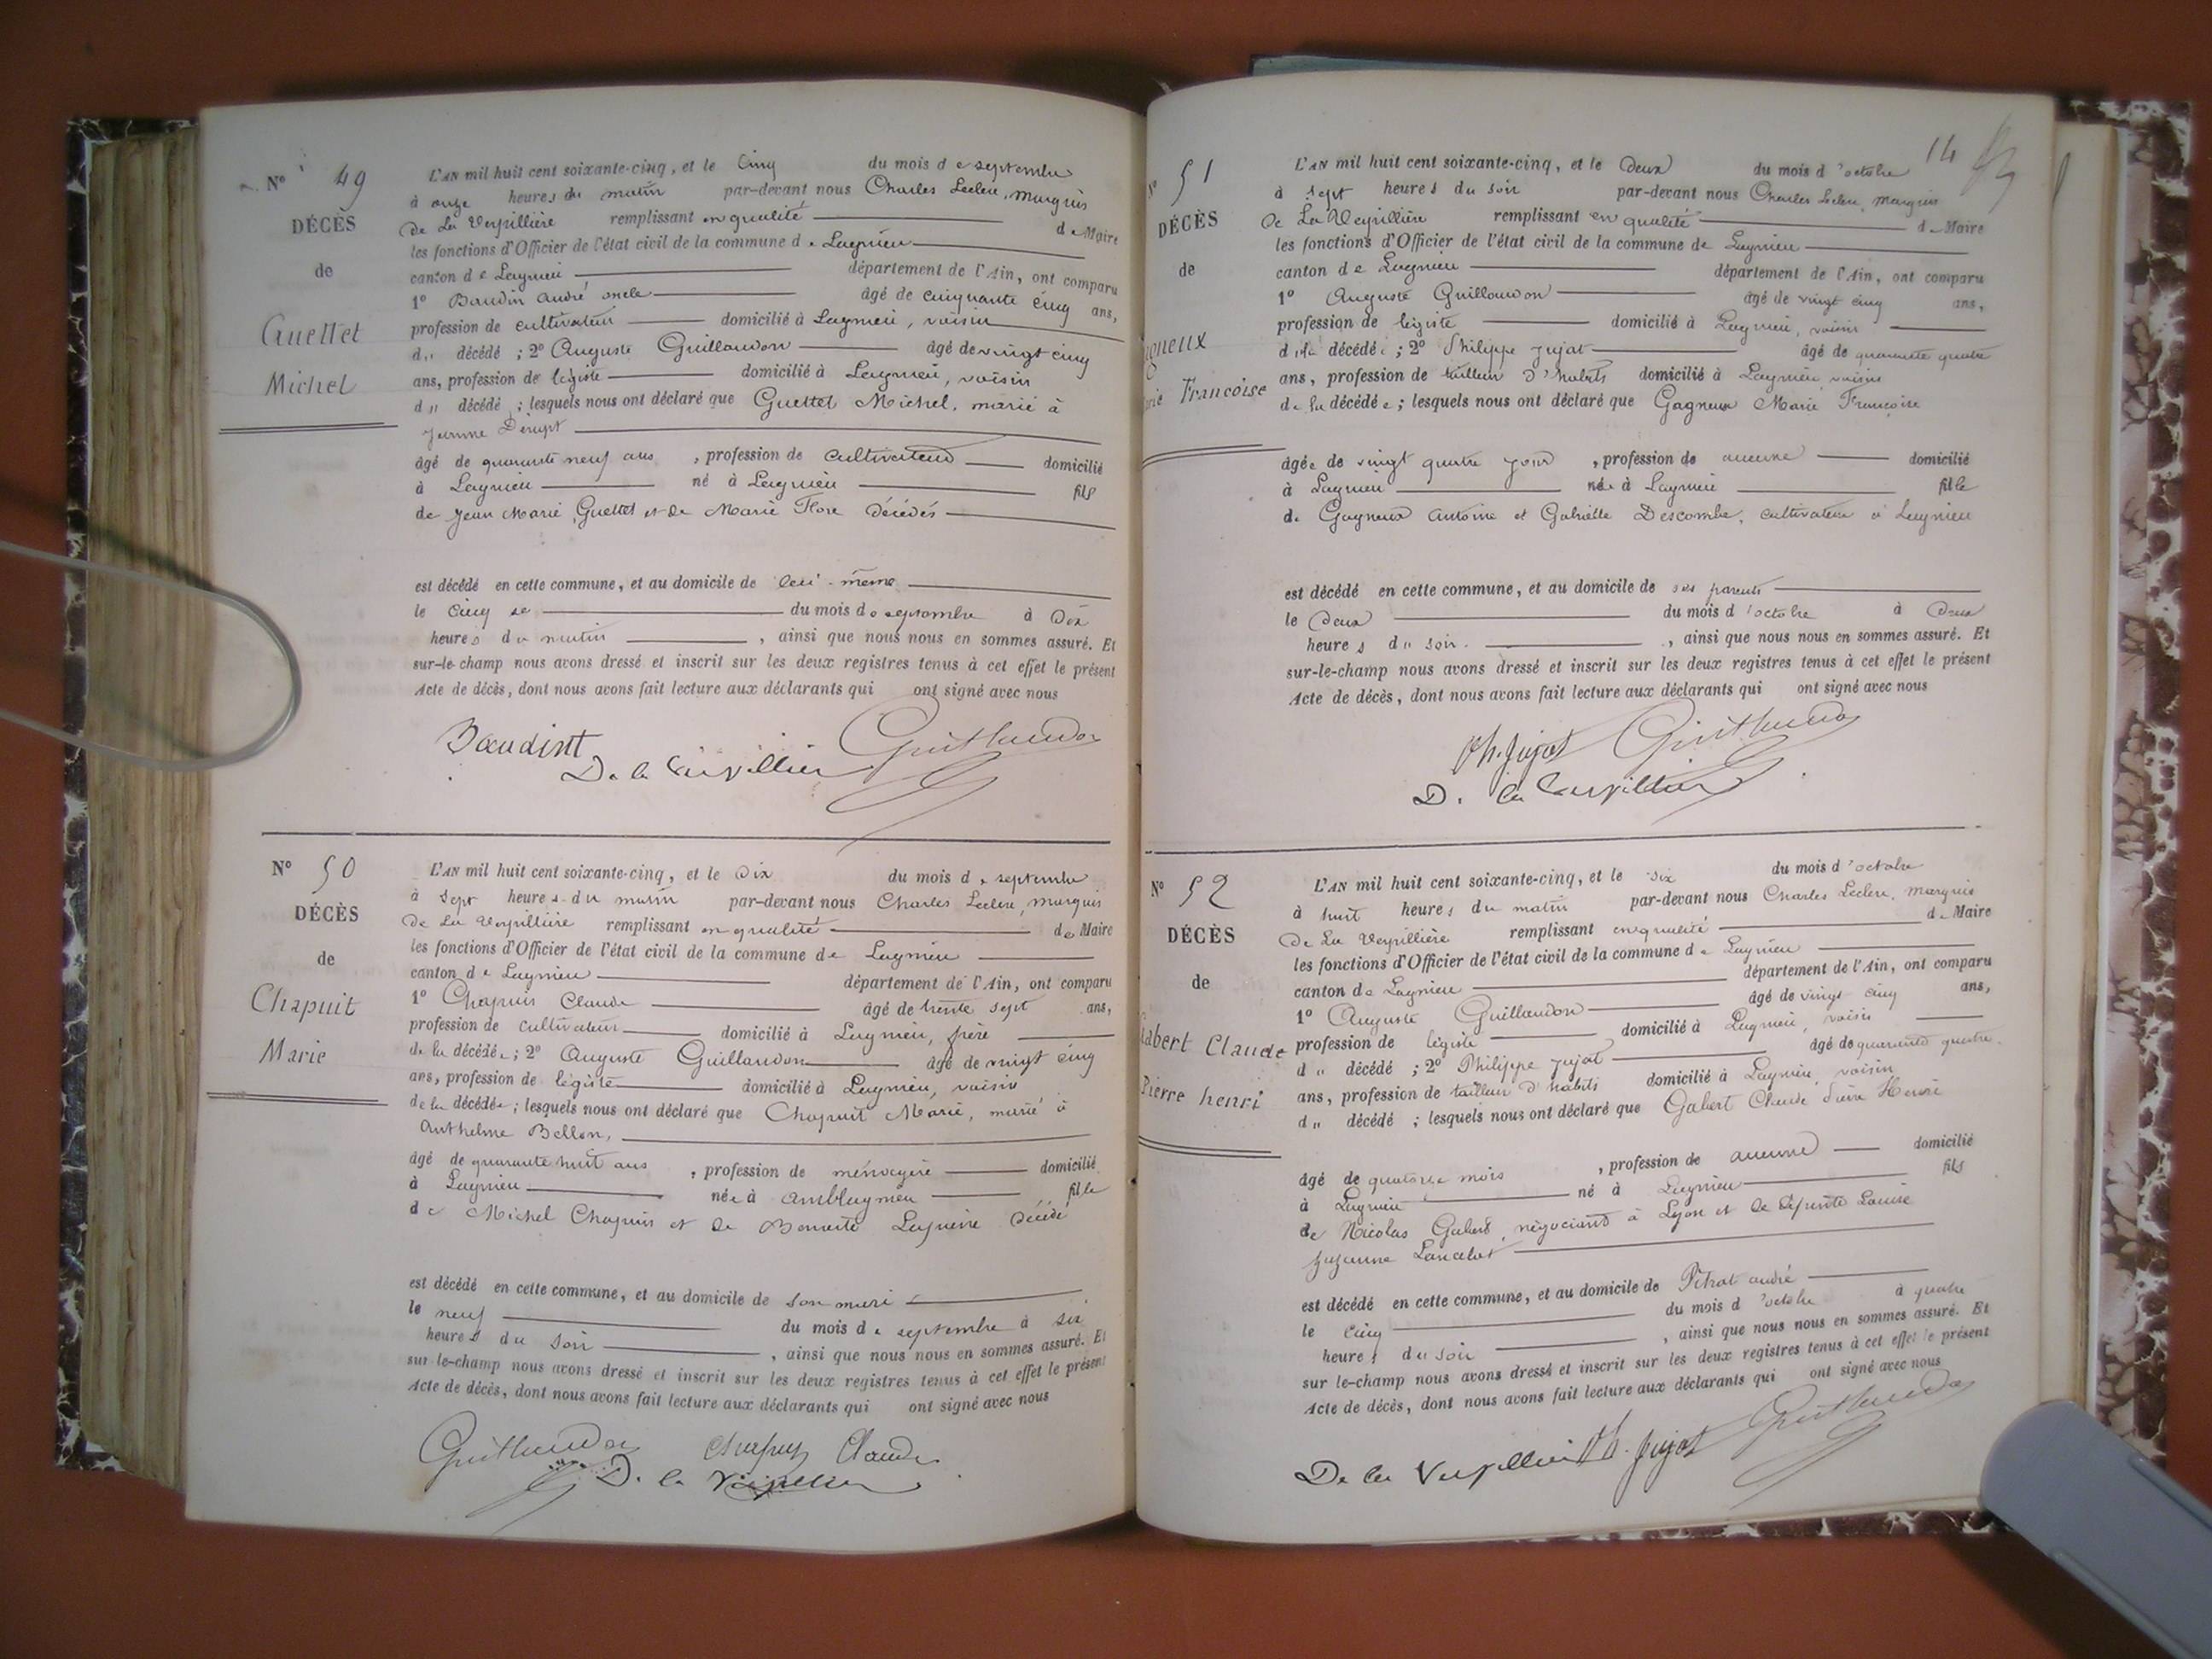 N° 49
DÉCÈS
de
Guettet
Michel
L'AN mil huit cent soixante-cinq, et le Cinq du mois de septembre
à onze heures du matin par-devant nous Charles Leclerc, marquis
De La Verpillière remplissant en qualité de Maire
les fonctions d'Officier de l'état civil de la commune de Lagnieu
canton de Lagnieu département de l'Ain, ont comparu
1° Baudin André oncle âgé de cinquante cinq ans,
profession de cultivateur domicilié à Lagnieu, voisin
du décédé ; 2° Auguste Guillaudon âgé de vingt cinq
ans, profession de légiste domicilié à Lagnieu, voisin
du décédé ; lesquels nous ont déclaré que Guettet Michel, marié à
Jeanne
âgé de quarante neuf ans , profession de cultivateur domicilié
à Lagnieu né à Lagnieu fils
de Jean Marie Guettet et de Marie Flore Décédés
est décédé en cette commune, et au domicile de lui-même
le cinq du mois de septembre à Dix
heures du matin , ainsi que nous nous en sommes assuré. Et
sur-le-champ nous avons dressé et inscrit sur les deux registres tenus à cet effet le présent
Acte de décès, dont nous avons fait lecture aux déclarants qui ont signé avec nous
Baudin Guillaudon
De la Verpillière
N° 50
DÉCÈS
de
Chapuit
Marie
L'AN mil huit cent soixante-cinq, et le Dix du mois de septembre
à sept heures du matin par-devant nous Charles Leclerc, marquis
De La Verpillière remplissant en qualité de Maire
les fonctions d'Officier de l'état civil de la commune de Lagnieu
canton de Lagnieu département de l'Ain, ont comparu
1° Chapuis Claude âgé de trente sept ans,
profession de cultivateur domicilié à Lagnieu, frère
de la décédée ; 2° Auguste Guillaudon âgé de vingt cinq
ans, profession de légiste domicilié à Lagnieu, voisin
de la décédée ; lesquels nous ont déclaré que Chapuit Marie, marié à
Anthelme Bellon,
âgé de quarante huit ans , profession de ménagère domicilié
à Lagnieu née à Amblagnieu fille
de Michel Chapuis et de décédé
est décédé en cette commune, et au domicile de son mari
le neuf du mois de septembre à six
heures du soir , ainsi que nous nous en sommes assuré. Et
sur-le-champ nous avons dressé et inscrit sur les deux registres tenus à cet effet le présent
Acte de décès, dont nous avons fait lecture aux déclarants qui ont signé avec nous
Guillaudon Chapuy Claude
D. la Verpillière
14
N° 51
DÉCÈS
de
gneux
rie Francoise
L'AN mil huit cent soixante-cinq, et le Deux du mois d'octobre
à sept heures du soir par-devant nous Charles Leclerc, marquis
De La Verpillière remplissant en qualité de Maire
les fonctions d'Officier de l'état civil de la commune de Lagnieu
canton de Lagnieu département de l'Ain, ont comparu
1° Auguste Guillaudon âgé de vingt cinq ans,
profession de légiste domicilié à Lagnieu, voisin
de la décédée ; 2° Philippe Jujat âgé de quarante quatre
ans, profession de tailleur d'habits domicilié à Lagnieu, voisin
de la décédée ; lesquels nous ont déclaré que Gagneux Marie Françoise
âgée de vingt quatre jours , profession de aucune domicilié
à Lagnieu née à Lagnieu fille
de Gagneux Antoine et Gabrielle Descombe, cultivateur à Lagnieu
est décédé en cette commune, et au domicile de ses parents
le Deux du mois d'octobre à Deux
heures du soir. , ainsi que nous nous en sommes assuré. Et
sur-le-champ nous avons dressé et inscrit sur les deux registres tenus à cet effet le présent
Acte de décès, dont nous avons fait lecture aux déclarants qui ont signé avec nous
Ph. Jujat Guillaudon
D. la Verpillière
N° 52
DÉCÈS
de
Gabert Claude
Pierre henri
L'AN mil huit cent soixante-cinq, et le six du mois d'octobre
à huit heures du matin par-devant nous Charles Leclerc, marquis
De La Verpillière remplissant en qualité de Maire
les fonctions d'Officier de l'état civil de la commune de Lagnieu
canton de Lagnieu département de l'Ain, ont comparu
1° Auguste Guillaudon âgé de vingt cinq ans,
profession de légiste domicilié à Lagnieu, voisin
du décédé ; 2° Philippe Jujat âgé de quarante quatre
ans, profession de tailleur d'habits domicilié à Lagnieu, voisin
du décédé ; lesquels nous ont déclaré que Gabert Claude Pierre Henri
âgé de quatorze mois , profession de aucune domicilié
à Lagnieu né à Lagnieu fils
de Nicolas Gabert, négociant à Lyon et de défunte Louise
Suzanne Lancelot
est décédé en cette commune, et au domicile de Pitrat andré
le cinq du mois d'octobre à quatre
heures du soir , ainsi que nous nous en sommes assuré. Et
sur le-champ nous avons dressé et inscrit sur les deux registres tenus à cet effet le présent
Acte de décès, dont nous avons fait lecture aux déclarants qui ont signé avec nous
De la Verpillière Ph. Jujat Guillaudon